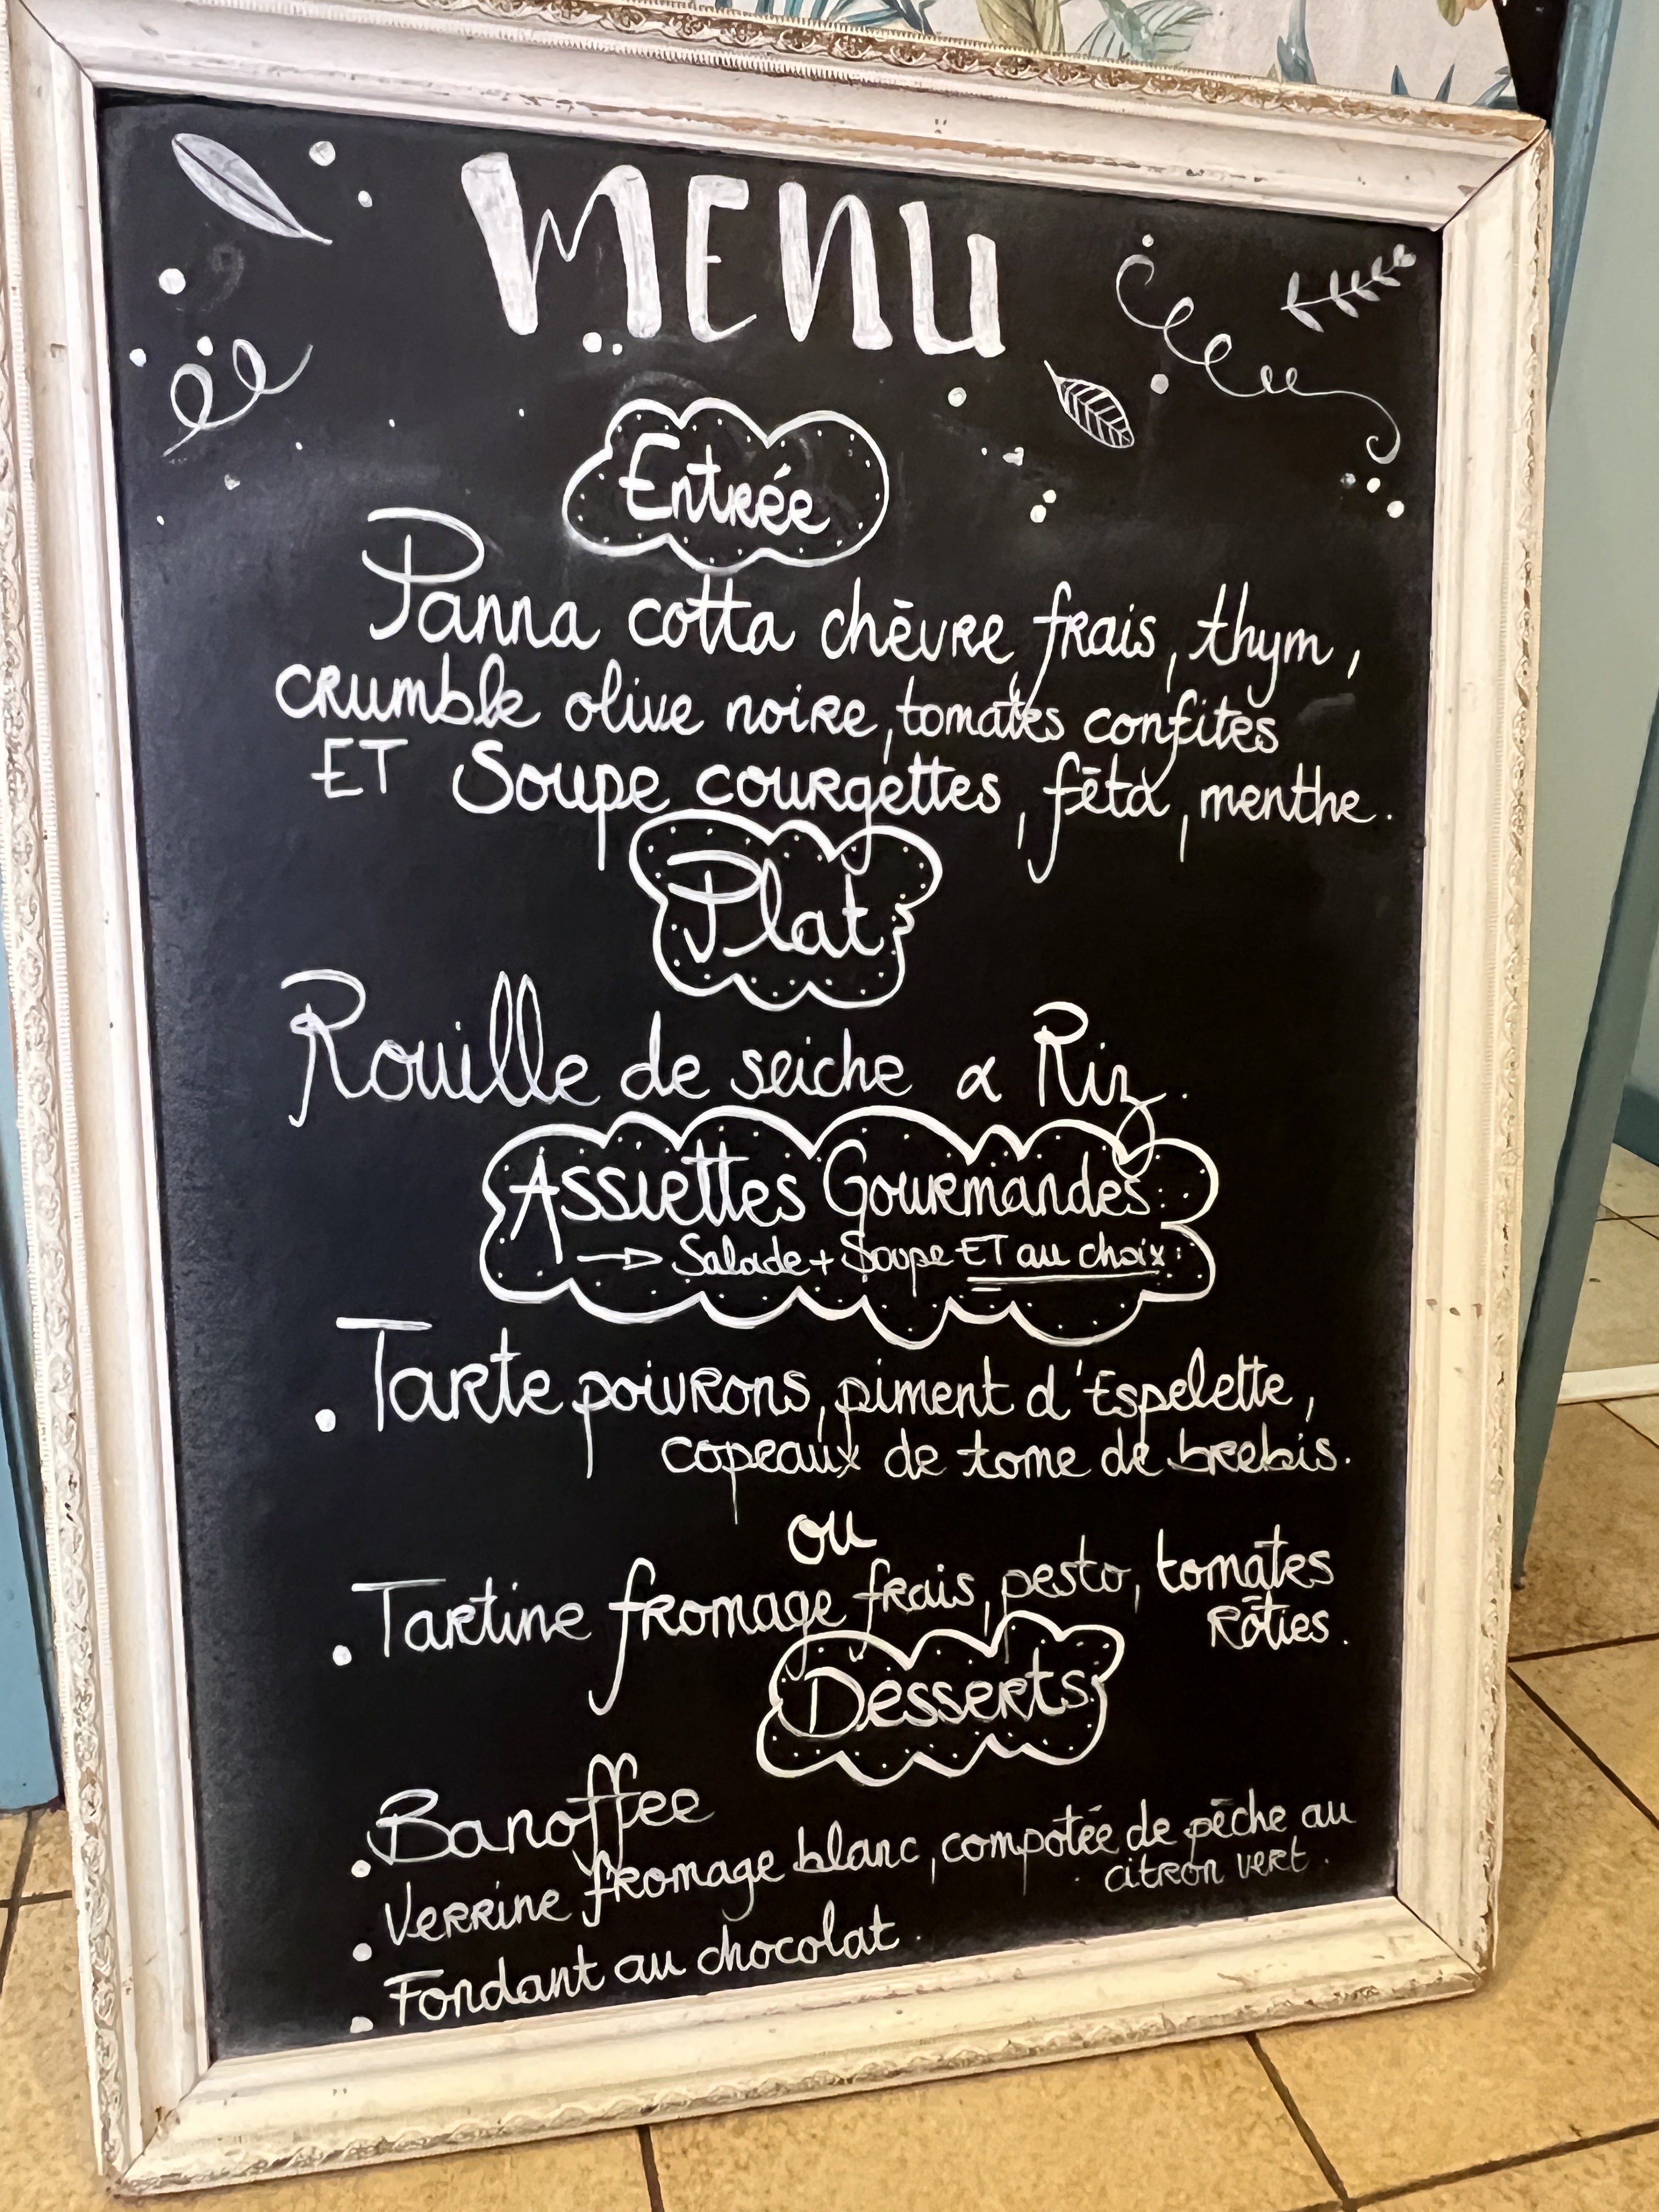 MENU
Entrée
Panna cotta chèvre frais, thym,
crumble olive noire, tomates confites
ET Soupe courgettes, fêta, menthe.
Plat
Rouille de seiche & Riz.
Assiettes Gourmandes:
→ Salade + Soupe ET au choix:
• Tarte poivrons, piment d'Espelette,
copeaux de tome de brebis.
ou
• Tartine fromage frais, pesto, tomates
rôties.
Desserts
• Banoffee
• Verrine fromage blanc, compotée de pêche au
citron vert.
• Fondant au chocolat.